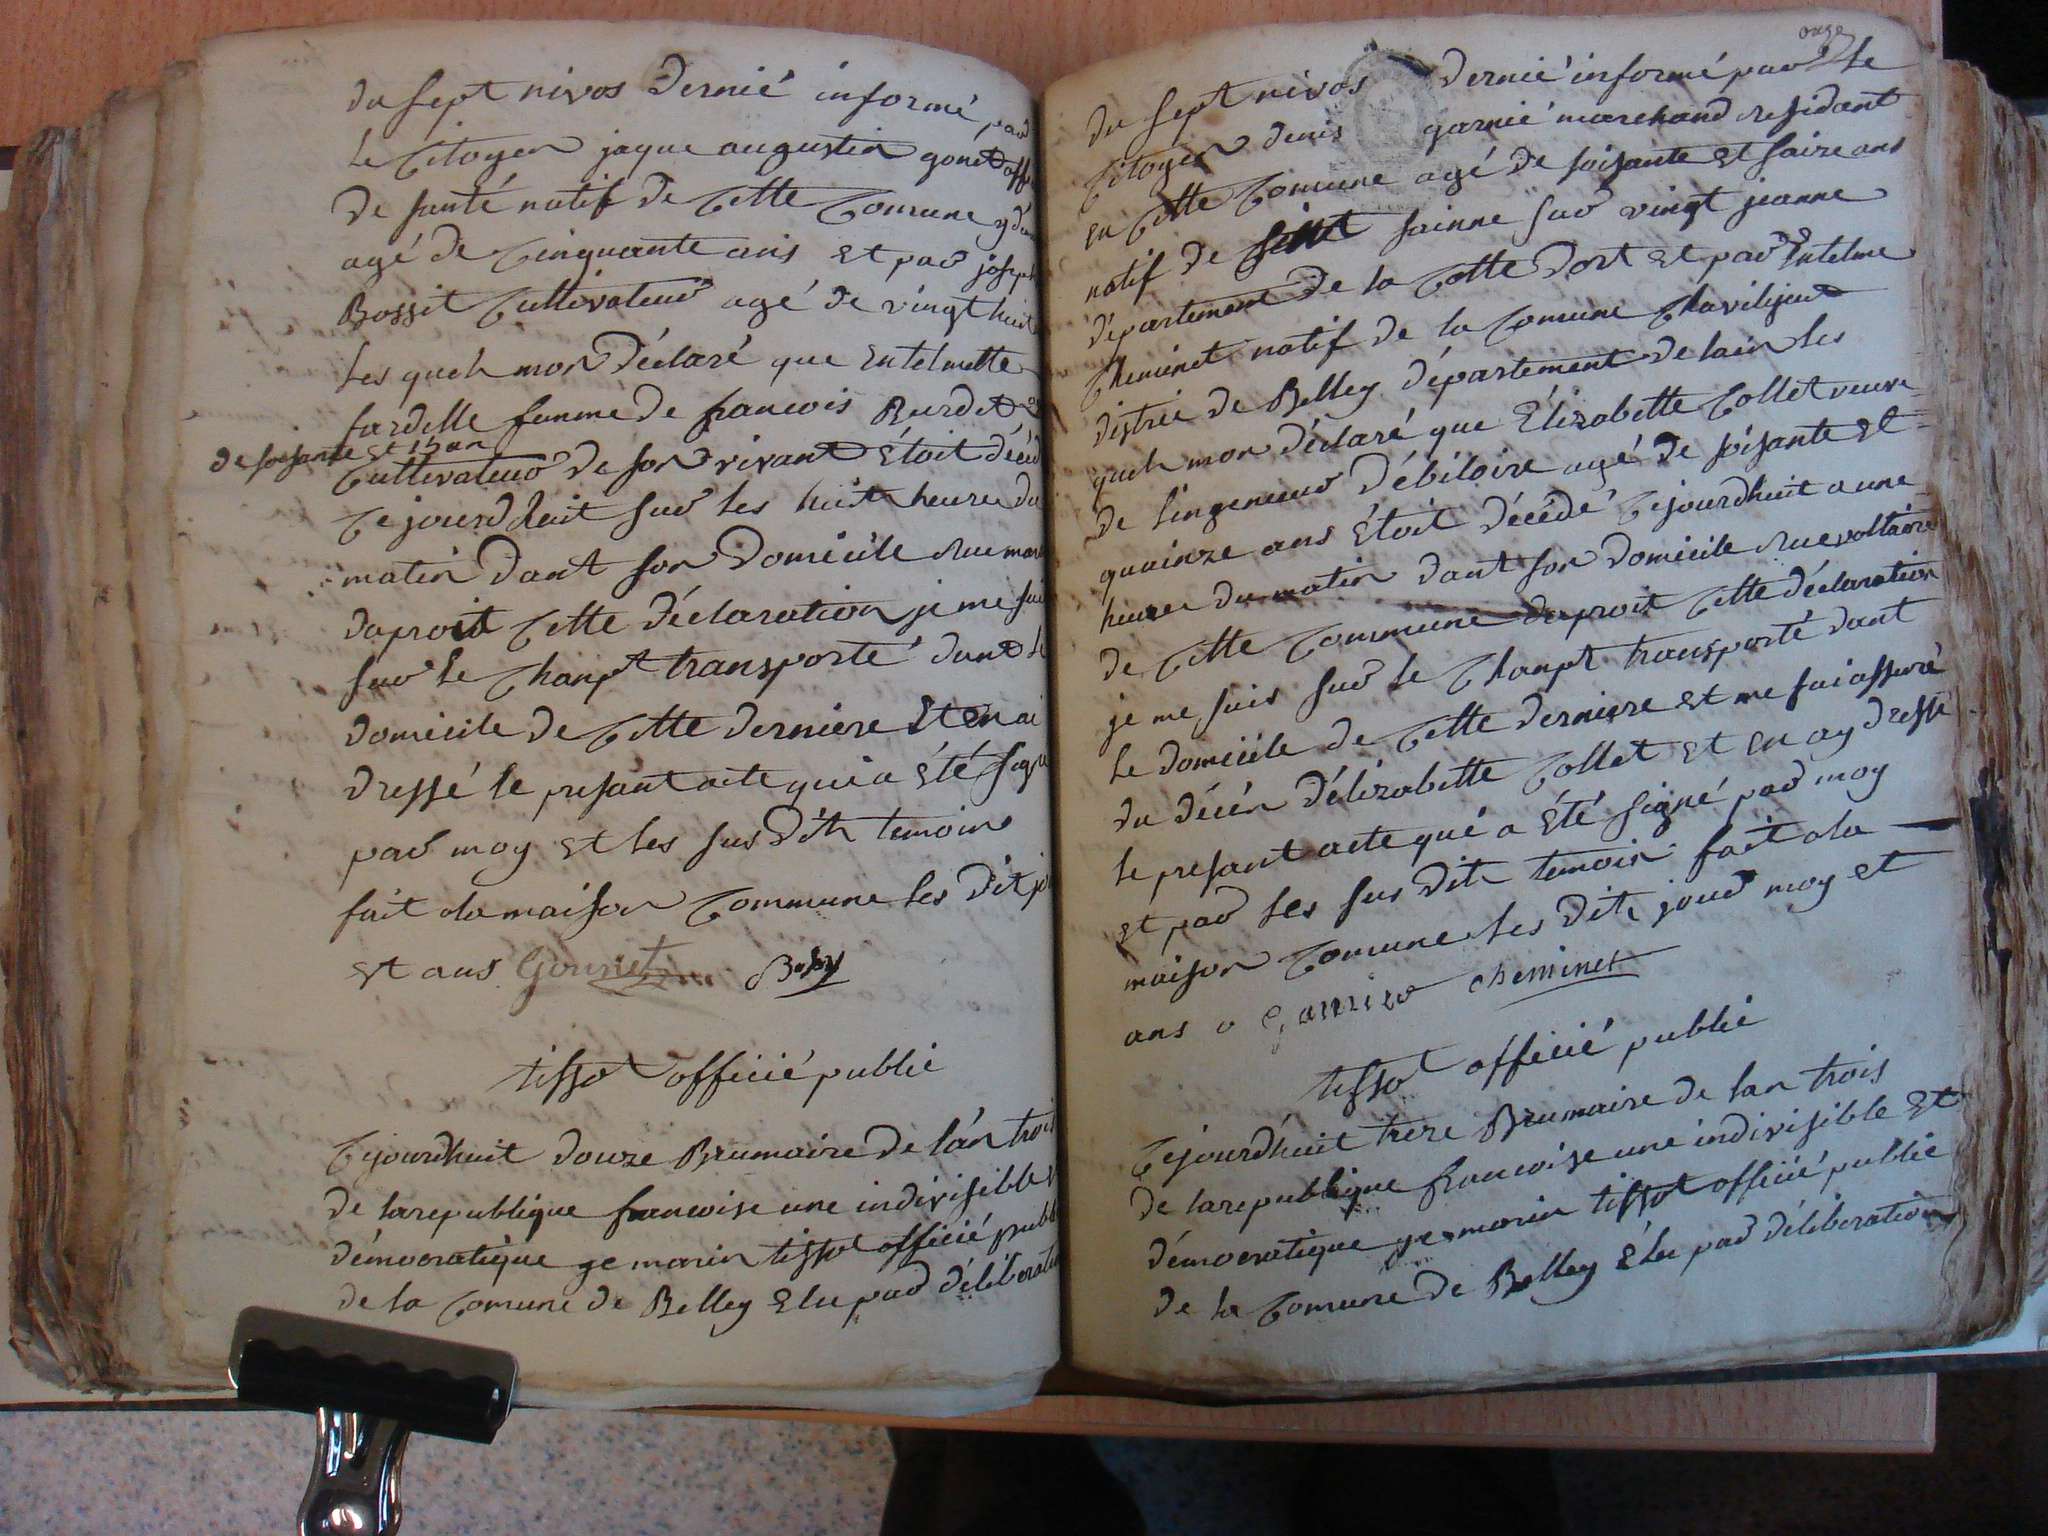 du sept nivos dernié informé par
le citoyen jaque augustin gonet off
de santé natif de cette comune y
agé de cinquante ans et par joseph
Bossit cultivateur agé de vingt huit
les quels mon déclaré que entelmette
fardelle famme de francois Burdet
de soisante et 15 an
cultivateur de son vivant étoit décéd
cejourdhuit sur les huit heures du
matin dant son domicile rue
daproit cette déclaration je me sui
sur le chanpt transporté dant le
domicile de cette derniere et en ai
dressé le presant acte qui a été signé
par moy et les sus dits temoins
fait ala maison commune les dit jo
et ans Gonnet Bossy
tissot officié public
cejourdhuit douze Brumaire de lan trois
de larepublique francoise une indivisible
démocratique ge marin tissot officié publi
de la comune de Belley elu par déliberation
onze
du sept nivos dernié informé par le
citoyen denis garnié marchand residant
en cette comune agé de soisante et saize ans
natif de saint sainne sur vingt jeanne
département de la cotte dort et par entelme
cheminet natif de la comune chavilieut
distric de Belley département de lain les
quels mon déclaré que élizabette collet veuve
de lingenieur débiloire agé de soisante et
quainze ans étoit décédé cejourdhuit a une
heures du matin dant son domicile rue voltaire
de cette commune daproit cette déclaration
je me suis sur le chanpt transporté dant
le domicile de cette derniere et me sui assuré
du décés délizabette collet et en ay dressé
le presant acte qué a été signé par moy
et par les sus dits temoins fait ala
maison comune les dits jour moy et
ans garnier cheminet
tissot officié public
cejourdhuit treze Brumaire de lan trois
de larepublique francoise une indivisible et
démocratique ge marin tissot officié public
de la comune de Belley élu par déliberation